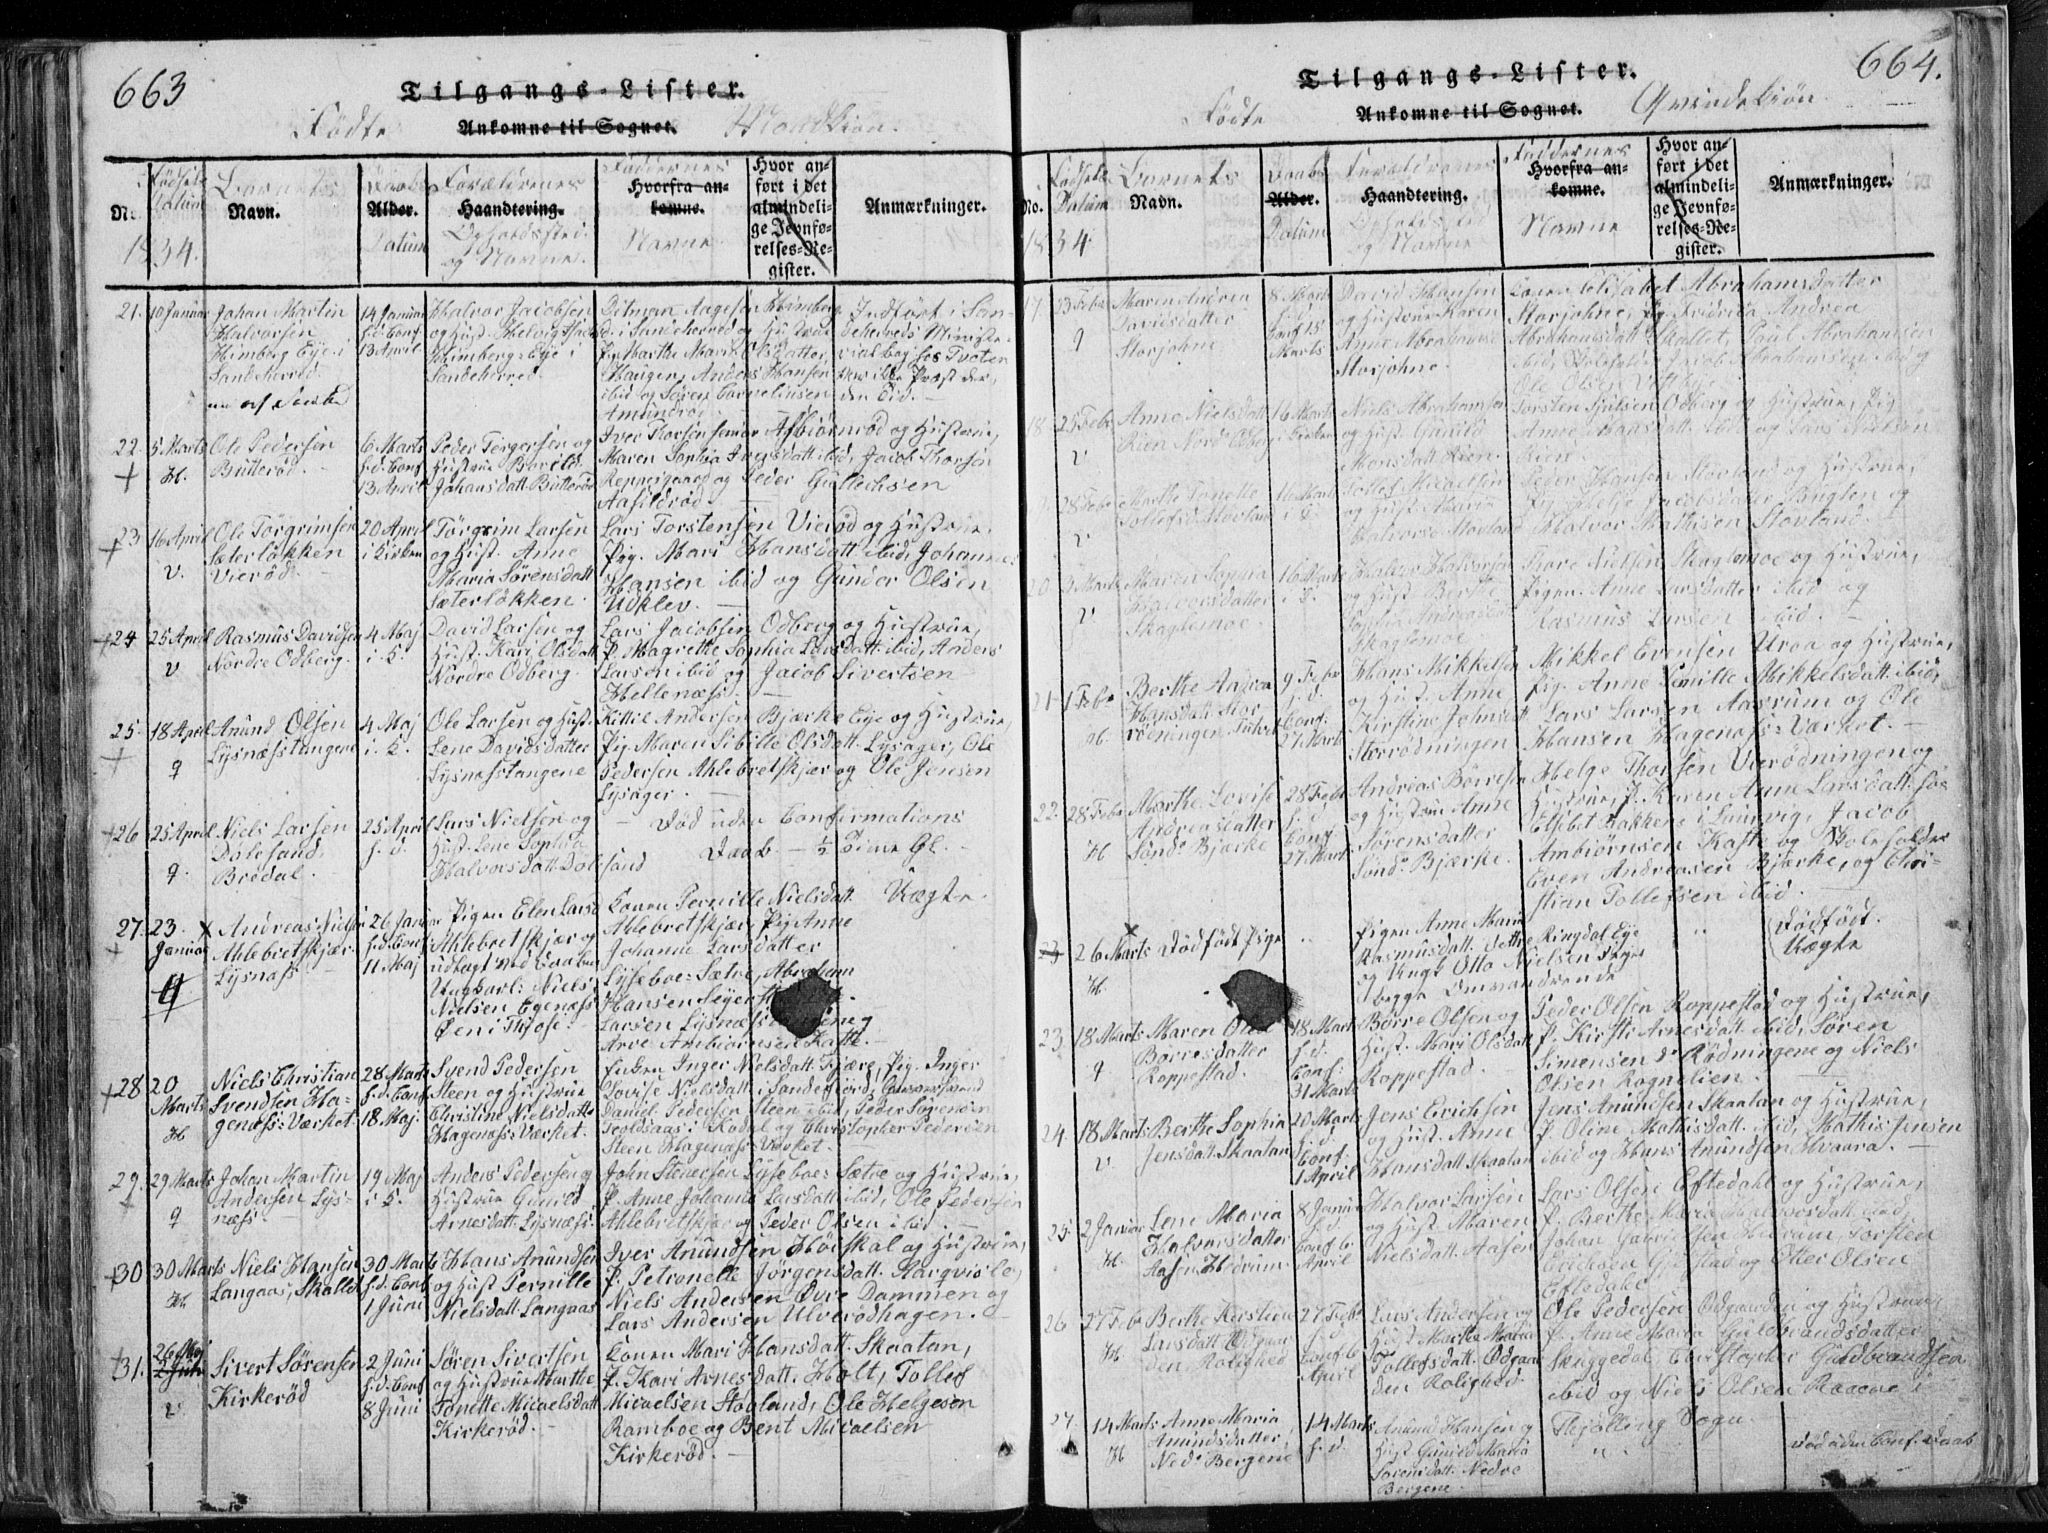 663
Tilgangs-Lister.
Fødte Ankomne til Sognet. Mandkiøn.
No.
Fødsels Datum
Barnets Navn.
Daabs Alder. Datum
Forældrenes Haandtering. Opholdsste og Navne.
Faddernes Hvorfra ankomne. Navne
Hvor anført i det almindelige Jevnførelses-Register.
Anmærkninger.
1834.
21. 10 Januar
Johan Martin
Halvorsen
Himberg Eje i
Sandeherred
14 Januar
h. d. Conf
13 April
Halvor Jacobsen
og Hust.
Himberg Eje i
Sandeherred
Ditman Aagesen Himberg
i Sandeherred og Hustrue
Pig. Marthe Marie Olsdatter
Haugen, Anders Hansen
ibid og Søren Corneliusen
Amundrød
Indført i San-
deherreds Ministe-
rialbog
22. 5 Marts
H.
Ole Pedersen
Butterød
6 Marts
h. d. Conf
13 April
Peder Torgersen og
Hustrue Borild
Johansdatt Butterød
Iver Thorsen senior Asbiørnrød og Hustrue,
Maren Sophia Iversdatt ibid, Jacob Thorsen
og Peder Gullechsen
23 16 April
V.
Ole Torgrimsen
Sæterløkken
Vierød
20 April
i Kirken
Torgrim Larsen
og Hust. Anne
Maria Sørensdatt
Sæterløkken.
Lars Torstensen Vierød og Hustrue,
Pig. Mari Hansdatt ibid, Johannes
Hansen ibid og Gunder Olsen
Udklev.
24 25 April
V
Rasmus Davidsen
Nordre Odberg.
4 Maj
i K.
David Larsen og
Hust. Kari Olsdatt
Nordre Odberg.
Lars Jacobsen Odberg og Hustrue,
P. Magrethe Sophia Larsdatt ibid, Anders
Larsen ibid og Jacob Sivertsen
Hellenæss.
25 18 April
q
Anund Olsen
Lysnæsstangene
4 Maj
i K.
Ole Larsen og Hust.
Lene Davidsdatter
Lysnæsstangene
Kittil Andersen Bjærke Eje og Hustrue,
Pig. Maren Sibille Olsdatt. Lysager, Ole
Pedersen Ahlebretskjær og Ole Jensen
Lysager.
26 25 April
q.
Niels Larsen
Dolesand,
Bredal.
25 April
h. d.
Lars Nielsen og
Hust. Lene Sophia
Halvorsdatt Dolesand
Død uden Confirmations
Daab. — ½ Time Gl.
27. 23. Januar
q
Andreas Nielsen
Ahlebretskjær.
Lysnæss
26 Januar
h. d. Conf
11 Maj
Pigen Elen Larsd
Ahlebretskjær og
udlagt ved Daaben
Ungkarl: Niels
Nielsen Egenæss
Øen i Thjose.
Konen Pernille Nielsdatt.
Ahlebretskjær, Pig. Anne
Johanne Larsdatter
Lyseboe: Sætre, Abraham
Hansen
Larsen Lysnæss
Arve Ambiørnsen Kaste.
Uægte.
28 20 Marts
H
Niels Christian
Svendsen Ha-
genæss: Værket.
28 Marts
h. d. Conf
18 Maj.
Svend Pedersen
Steen og Hustrue
Christine Nielsdatt
Hagenæss: Værket.
Enken Inger Nielsdatt. Fjære, Pig. Inger
Lovise Nielsdatt i Sandefiord,
Daniel Pedersen Steen ibid, Peder Sørensen
i Kodal og Christopher Pedersen
Steen Hagenæss Værket.
29. 29 Marts
q
Johan Martin
Andersen Lys-
næss.
19 Maj
i K.
Anders Pedersen og
Hustrue Gunild
Arnesdatt. Lysnæss.
John Stenersen Lyseboe: Sætre og Hustrue,
P. Anne Johanne Larsdatt ibid, Ole Pedersen
Ahlebretskjær og Peder Olsen ibid.
30 30 Marts
H
Niels Hansen
Langaas, Skallet
30 Marts
h. d. Conf
1 Juni
Hans Anundsen
og Hust Pernille
Nielsdatt. Langaas
Iver Anundsen Høiskal og Hustrue,
P. Petronelle Jørgensdatt. Hargvisle,
Niels Andersen Øvre Dammen og
Lars Andersen Ulverødhagen.
31. 26 Maj
V
Sivert Sørensen
Kirkerød
2 Juni
h. d. Conf
8 Juni
Søren Sivertsen
og Hustrue Marthe
Tonette Micaelsdatt
Kirkerød.
Konen Mari Hansdatt. Skaatan,
P. Kari Arnesdatt. Holt, Tollef
Micaelsen Stovland, Ole Helgesen
Ramboe og Bent Micaelsen
Kirkerød.
664.
Tilgangs-Lister.
Fødte Ankomne til Sognet. Qvindekiøn.
No.
Fødsels Datum
Barnets Navn.
Daabs Alder. Datum
Forældrenes Haandtering. Opholdsste og Navne
Faddernes Hvorfra ankomne. Navne
Hvor anført i det almindelige Jevnførelses-Register.
Anmærkninger.
1834.
17. 23 Febr
q
Maren Andrea
Davidsdatter
Storjohne
8 Marts
Conf 15
Marts
David Hansen
og Hustrue Karen
Anne Abrahamsd
Storjohne.
Konen Elisabet Abrahamsdatter
Storjohne, Pig. Fridrica Andrea
Abrahamsdatt Skallet, Paul Abrahamsen
ibid, Jacob Abrahamsen ibid og
Ole Olsen
18 25 Febr
V
Anne Nielsdatt.
Rien Nord. Odberg
16 Marts
i Kirken
Niels Abrahamsen
og Hust. Gunild
Monsdatt Rien.
Torsten Odberg og Hustrue, Pig.
Anne Monsdatt. ibid og Lars Nielsen
Rien.
28 Febr
V
Marthe Tonette
Tollefsd Stovland
16 Marts
i K
Tollef Micaelsen
og Hust. Maria
Halvorsd. Stovland
Peder Hansen Stovland og Hustrue,
Pig. Helje Jacobsdatter og
Halvor Mathisen Stovland.
20 3 Marts
V
Maren Sophia
Halvorsdatter
Skaglemoe.
16 Marts
i K.
Halvor Halvorsen
og Hust. Berthe
Sophia Andreasdatt
Skaglemoe
Thore Nielsen Skaglemoe og Hustrue,
Pigen Anne Larsdatter ibid og
Rasmus Larsen ibid.
21 1 Febr
H.
Berthe Andrea
Hansdatt. Stor-
rødningen
9 Febr
h. d.
Conf:
27 Marts
Hans Mikkelsen
og Hust. Anne
Kirstine Johnsdatt
Storrødningen
Mikkel Evensen Uroa og Hustrue,
Pig. Anne Senille Mikkelsdatt ibid,
Lars Larsen Aasrum og Ole
Hansen Hagenæss: Værket.
22. 28 Febr
H
Marthe Lovise
Andreasdatter
Sønd. Bjærke
28 Febr
h. d.
Conf.
27 Marts
Andreas Børresen
og Hustrue Anne
Sørensdatter
Sønd. Bjærke.
Helge Thorsen Vierødningen og
Hustrue, P. Karen Anne Larsdatt.
Elsebet Bakkene i Laurvig, Jacob
Ambiørnsen Kaste og Boleholder
Even Andreasen Bjærke, og Chri-
stian Tollefsen ibid.
23 26 Marts
H.
Dødfødt Pige
"
Pigen Anne Marie
Rasmusdatt. Dettre Ringdal Eje
og Ungk Otto Nielsen
begge Omvandrende
"
Dødfødt.
Uægte
23 18 Marts
q
Maren Olea
Børresdatter
Roppestad.
18 Marts
h. d.
Conf:
31 Marts
Børre Olsen og
Hust. Mari Olsdatt
Roppestad.
Peder Olsen Roppestad og Hustrue,
P. Kirsti Arnesdatt ibid, Søren
Simensen Rødningene og Niels
Olsen Rognelien.
24 18 Marts
V.
Berthe Sophia
Jensdatt. Skaatan
20 Marts
h. d.
Conf:
1 April
Jens Erichsen
og Hust. Anne
Hansdatt Skaatan
Jens Anundsen Skaatan og Hustrue,
P. Oline Mathisdatt. ibid, Mathis Jensen
ibid og Hans Anundsen Hvaara.
25 2 Januar
H.
Lene Maria
Halvorsdatter
Aasen Hedrum
8 Januar
h. d.
Conf 6
April
Halvor Larsen
og Hust. Maren
Nielsdatt. Aasen
Lars Olsen Eftedahl og Hustrue,
P. Berthe Maria Halvorsdatt ibid,
Johan Gabrielsen Hedrum, Torsten
Erichsen Gjestad og Otter Olsen
Eftedahl.
26 27 Febr
H
Berthe Kirstine
Larsdatt Odgaar-
den, Rolighed
27 Febr
h. d.
Conf 6
April
Lars Andersen og
Hust. Marthe Maria
Tollefsdatt. Odgaar-
den Rolighed.
Ole Pedersen Odgaarden og Hustrue,
P. Anne Maria Guldbrandsdatter
Skuggedal, Christopher Guldbrandsen
ibid og Niels Olsen Raaene i
Thjølling Sogn.
27. 14 Marts
H
Anne Maria
Anundsdatter,
Ned. Bergene
14 Marts
h. d.
Anund Hansen og
Hust. Gunild Maria
Sørensdatt. Nedre
Bergene.
"
Død uden Conf. Daab